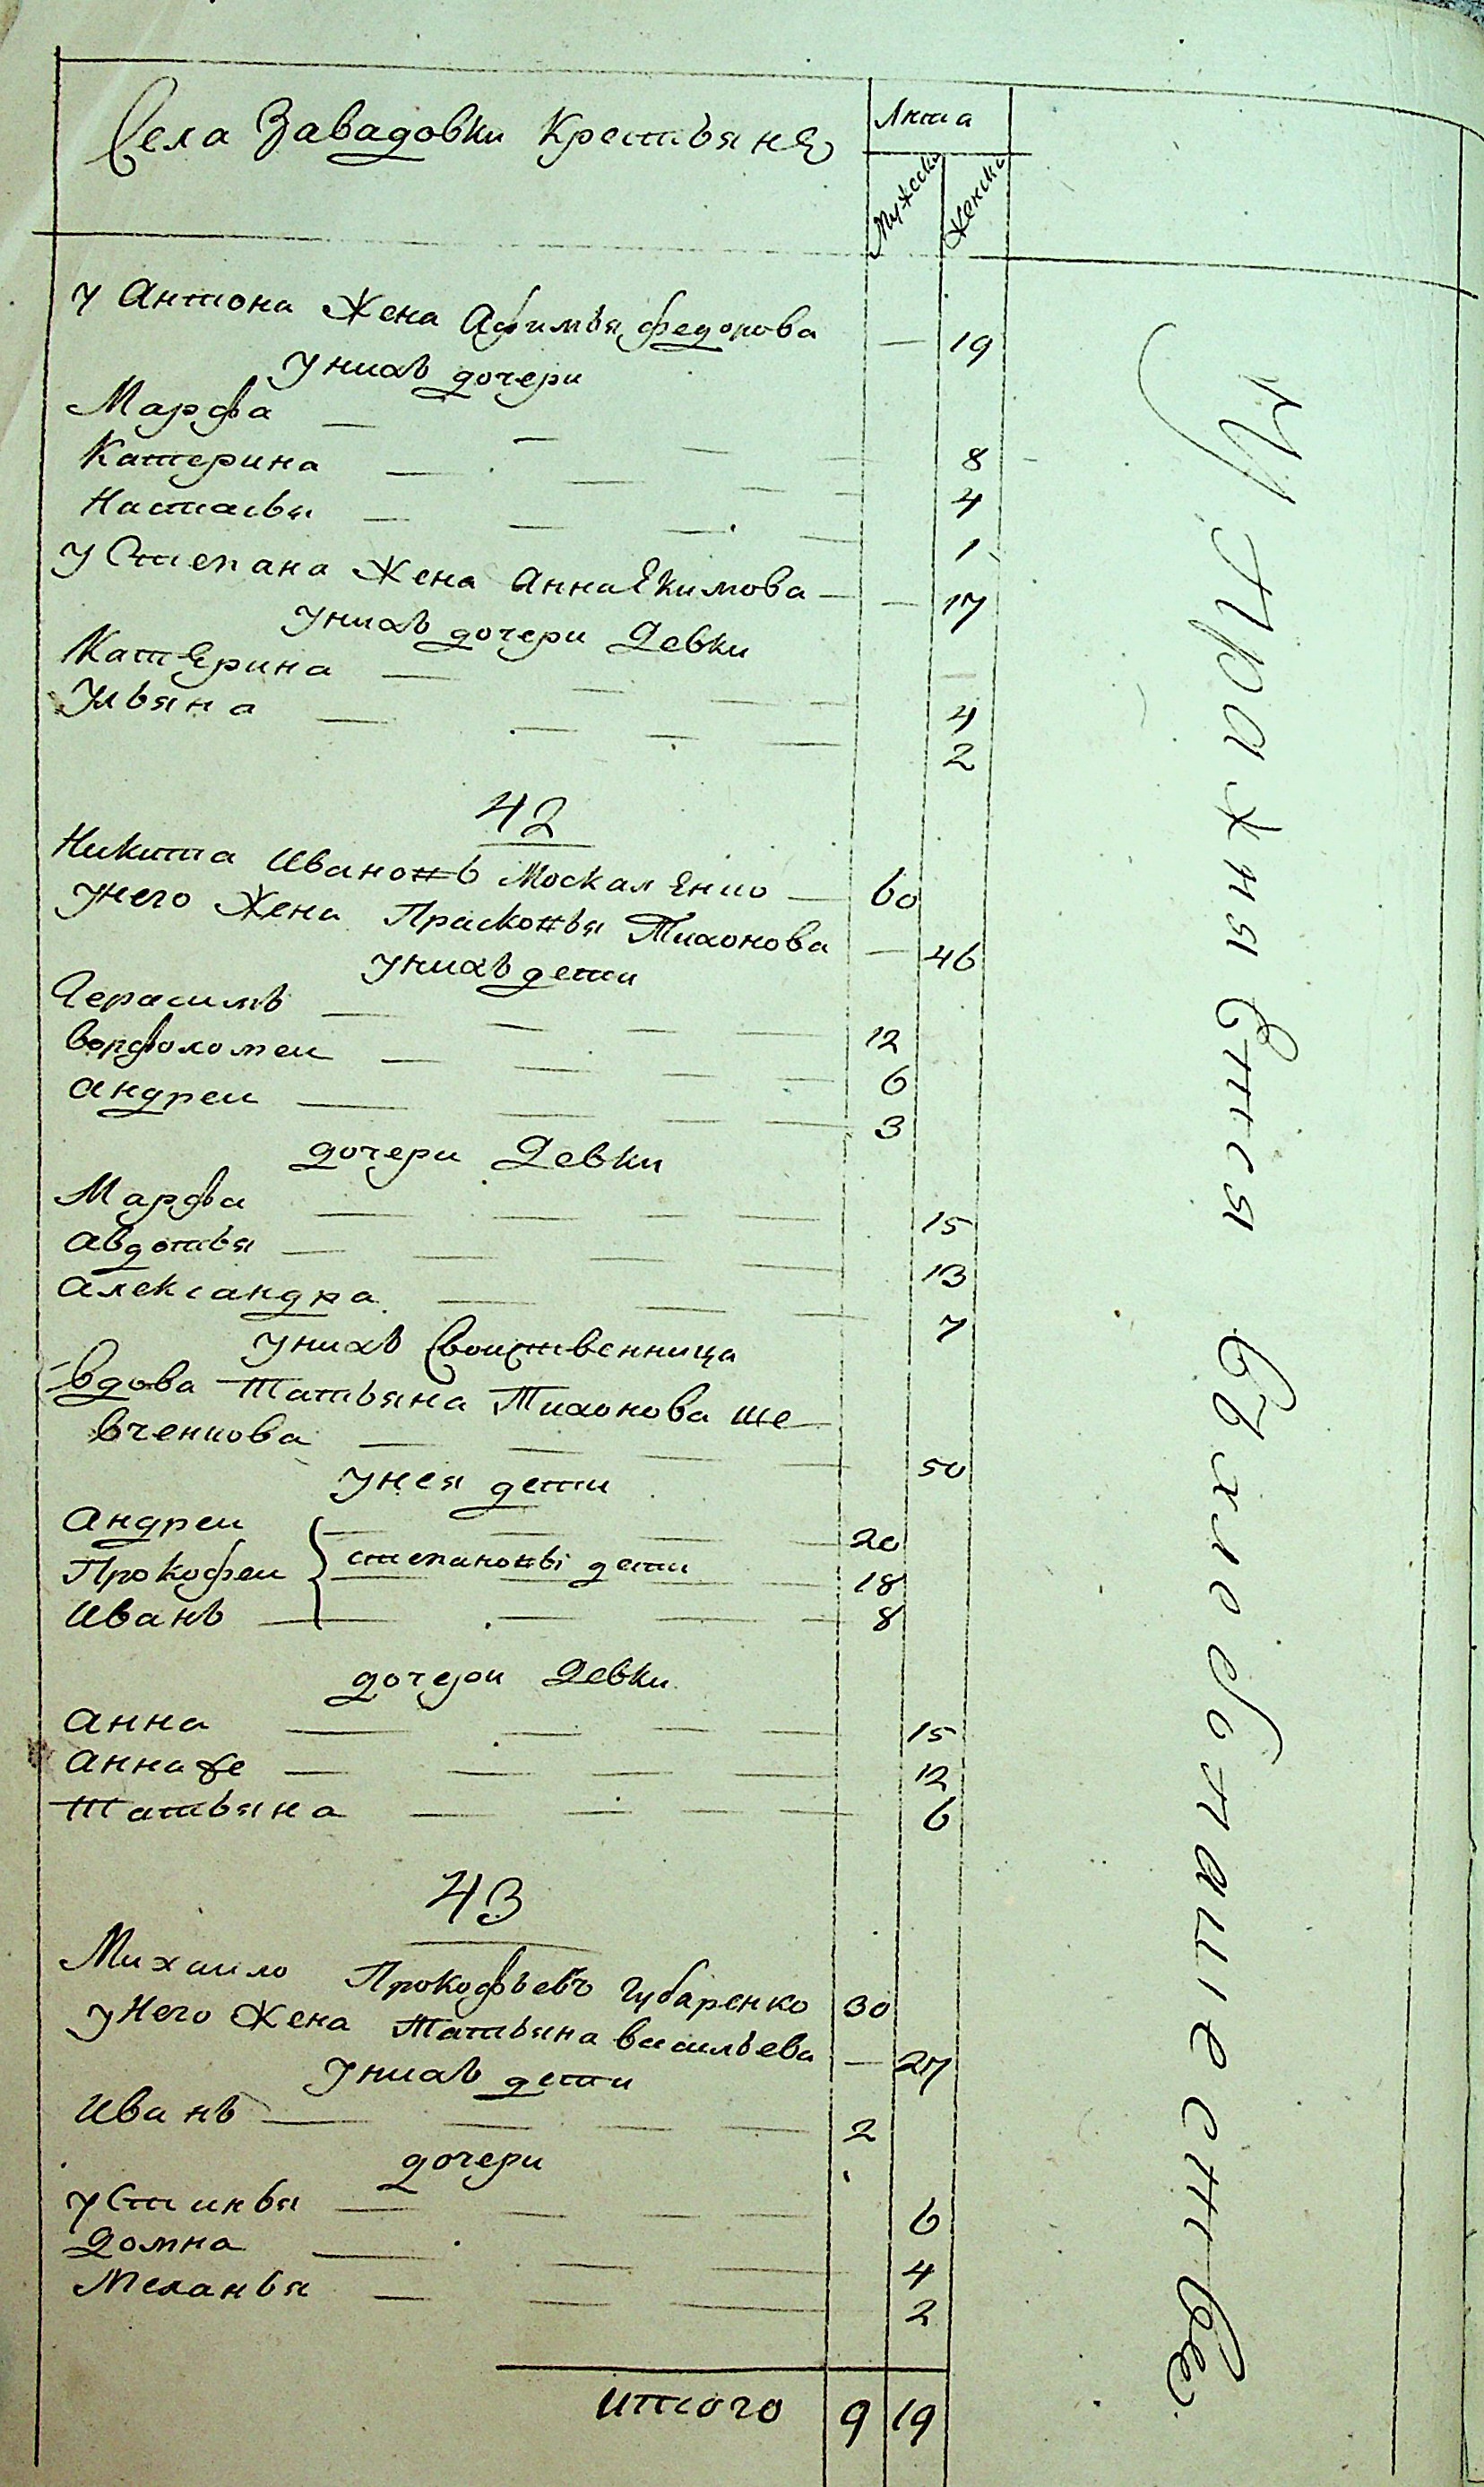 Села Завадовки Крестьяне
Лета
Мужеска
Женска
у Антона Жена Афимья федорова — 19
у нихъ дочери
Марфа — 8
Катерина — 4
Настасья — 1
у Степана Жена Анна Екимова — 17
у нихъ дочери Девки
Катерина — 4
Ульяна — 2
42
Никита Ивановъ Москаленко — 60
у него Жена Прасковья Тихонова — 46
у нихъ дети
Герасимъ — 12
Ворфоломеи — 6
Андреи — 3
дочери Девки
Марфа — 15
Авдотья — 13
Александра — 7
у нихъ Своиственница
вдова Татьяна Тихонова ше
вченкова — 50
у нея дети
Андреи — 20
Прокофеи } степановы дети — 18
Иванъ — 8
дочери Девки
Анна — 15
Анна же — 12
Татьяна — 6
43
Михаило Прокофьевъ Губаренко 30
у Него Жена Татьяна васильева — 27
у нихъ дети
Иванъ — 2
дочери
устинья — 6
Домна — 4
Меланья — 2
итого 9 19
Упражняется вхлебопашестве